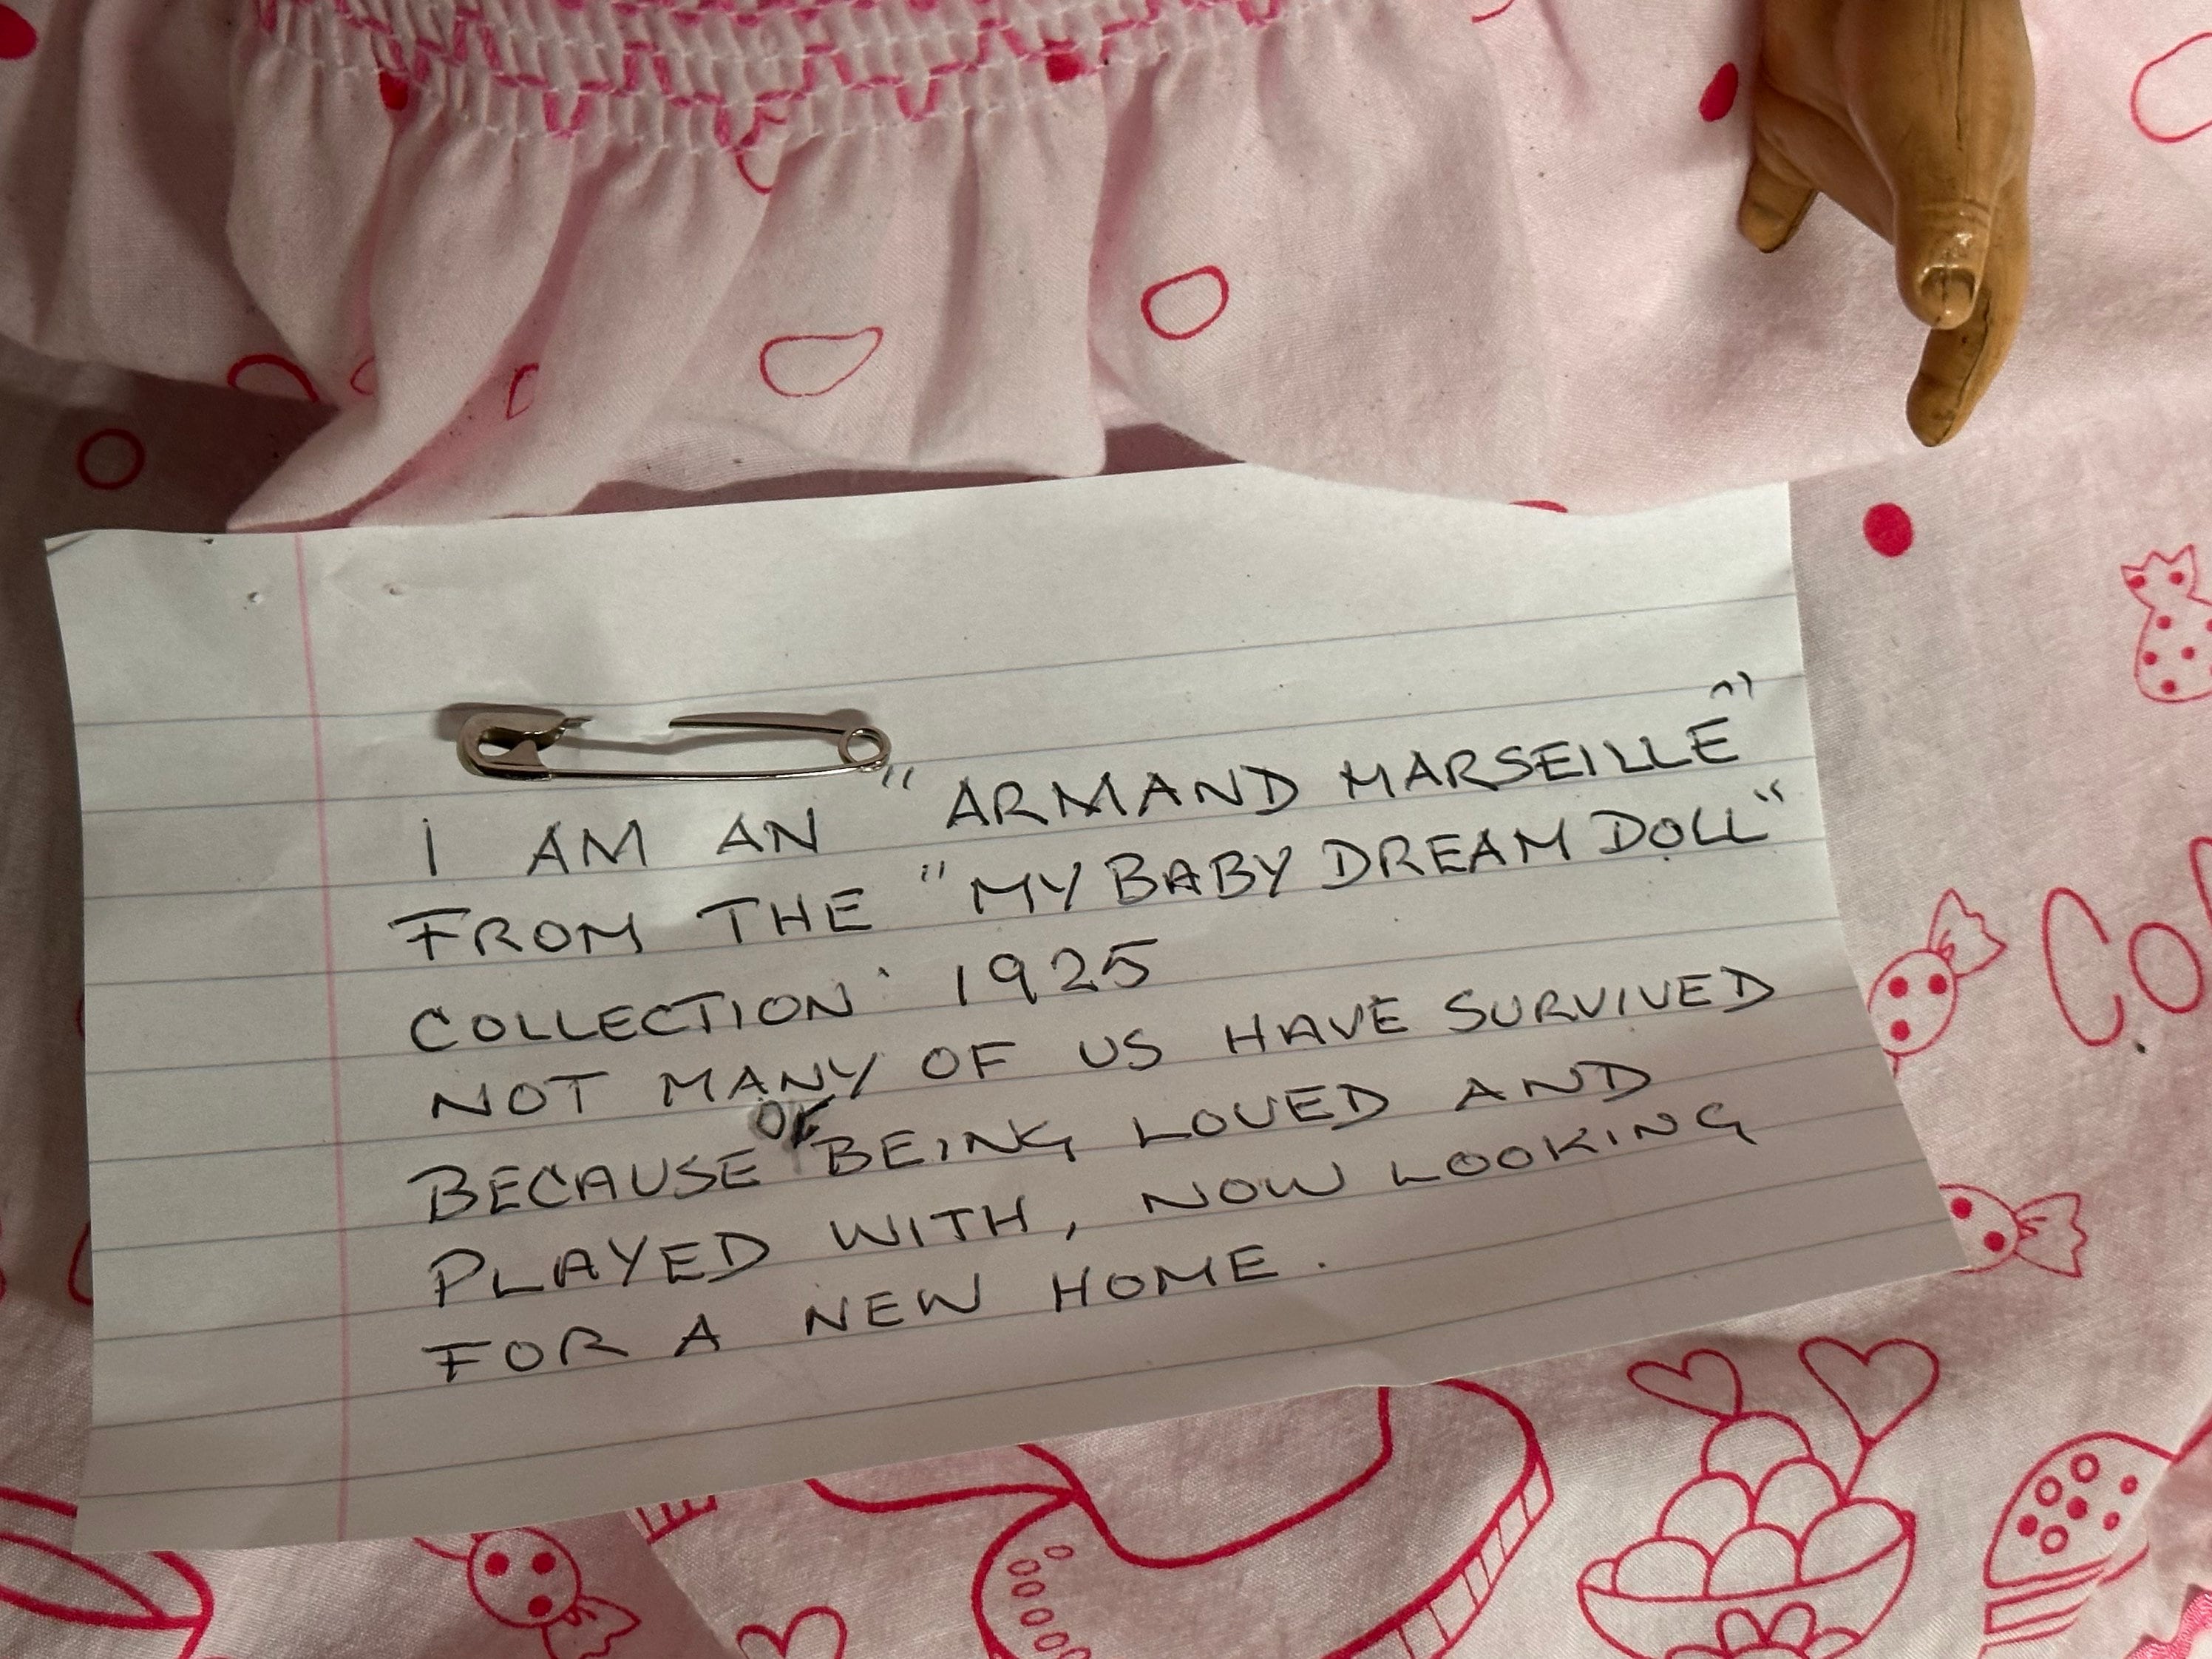 I AM AN "ARMAND MARSEILLE"
FROM THE "MY BABY DREAM DOLL"
COLLECTION 1925
NOT MANY OF US HAVE SURVIVED
BECAUSE OF BEING LOVED AND
PLAYED WITH, NOW LOOKING
FOR A NEW HOME.